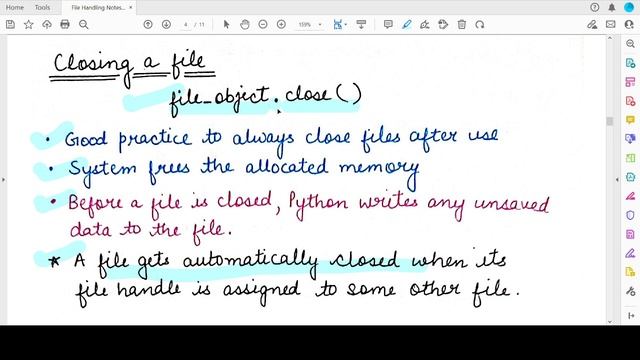 Home Tools File Handling Notes... ×
4 / 11 159%
Closing a file
file_object.close()
• Good practice to always close files after use
• System frees the allocated memory
• Before a file is closed, Python writes any unsaved
data to the file.
* A file gets automatically closed when its
file handle is assigned to some other file.